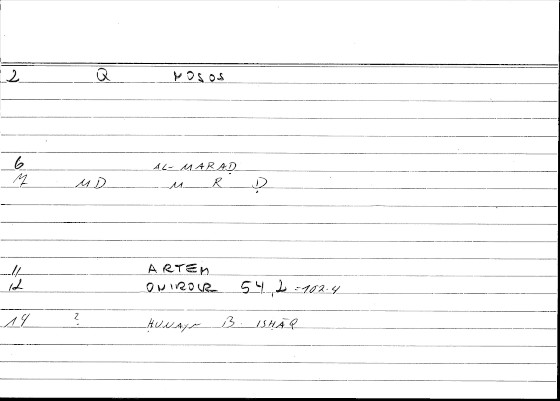 2 Q NOSOS
6 AL-MARAḌ
7 MD M R Ḍ
11 ARTEM
12 ONIROCR 54,2 =102.4
14 ? ḤUNAYN B. ISḤĀQ